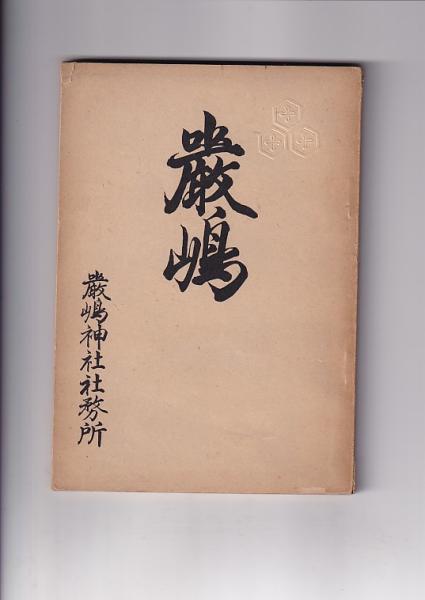 嚴嶋
嚴嶋神社社務所